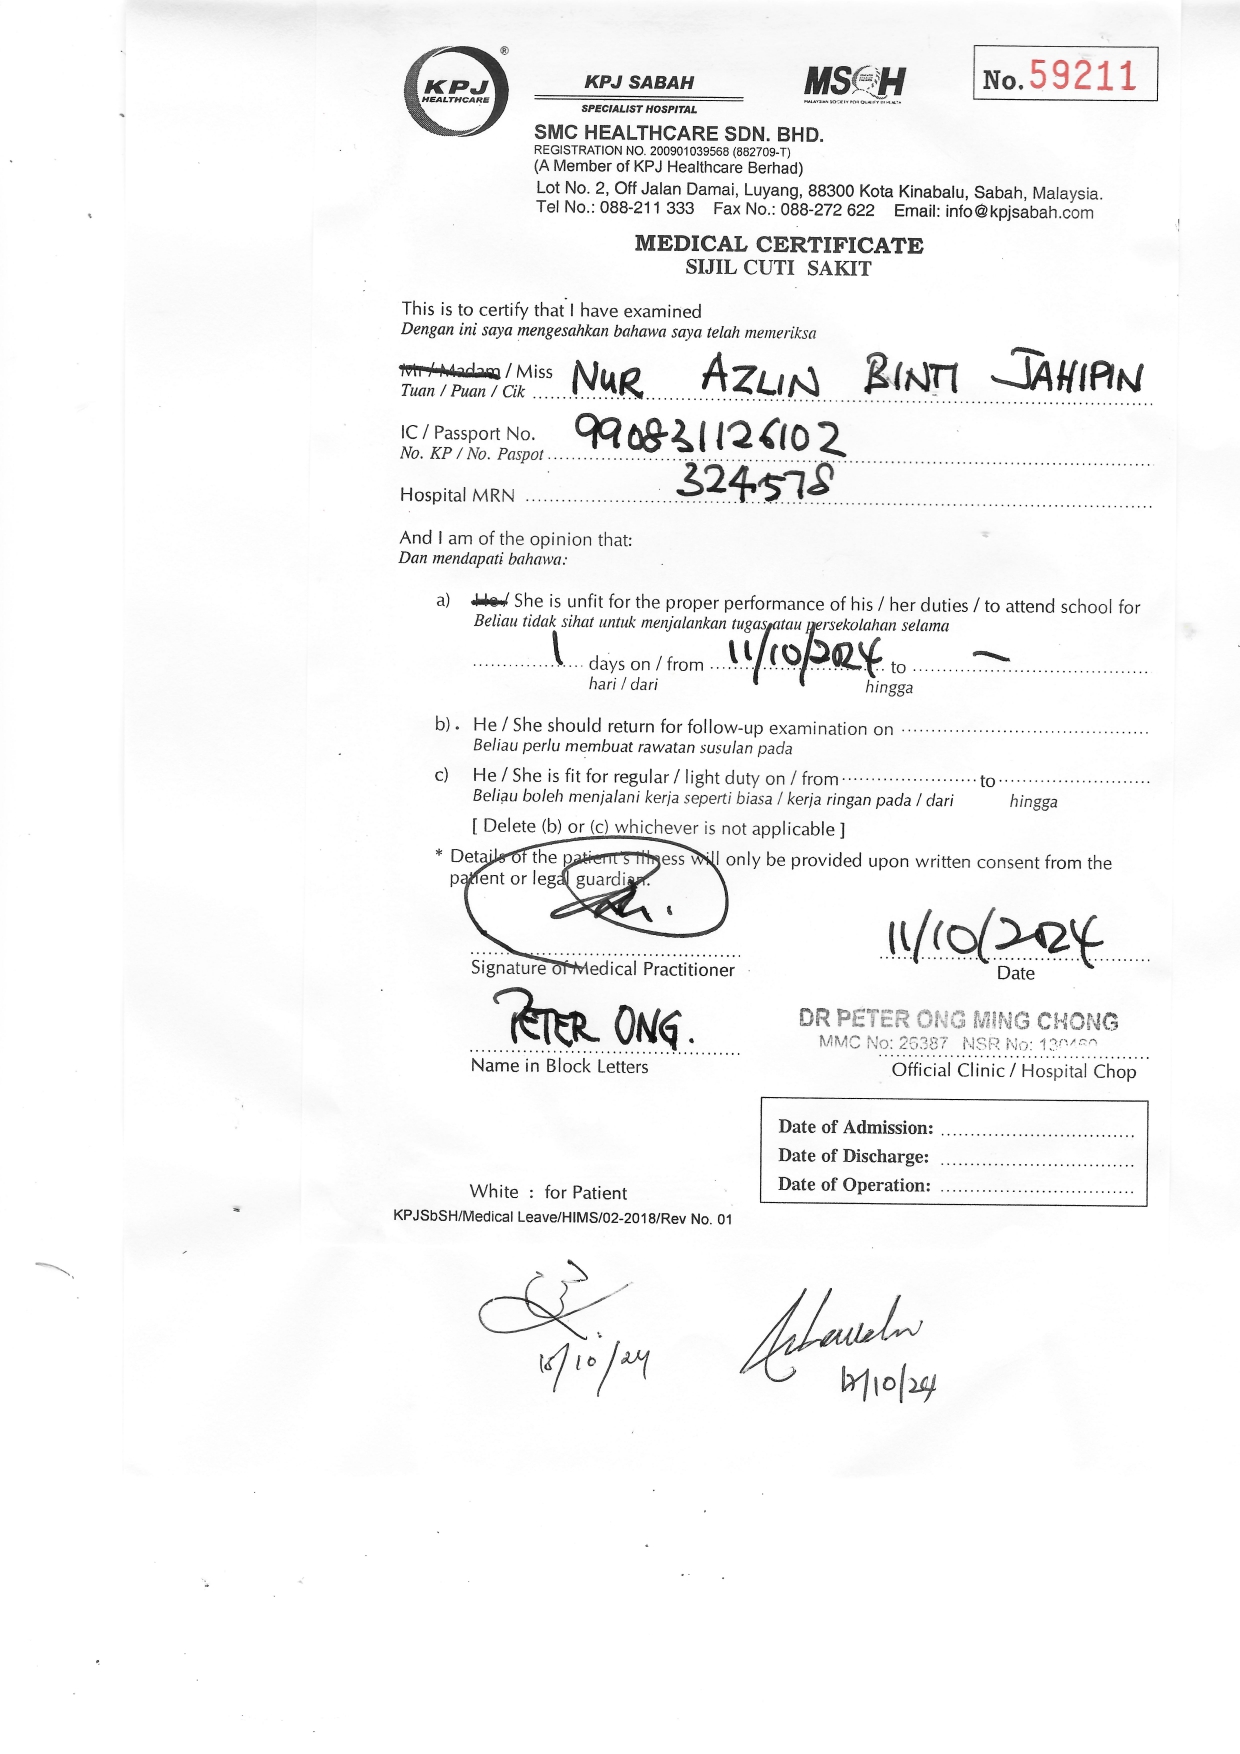 KPJ
HEALTHCARE
®
KPJ SABAH
SPECIALIST HOSPITAL
MSQH
MALAYSIAN SOCIETY FOR QUALITY IN HEALTH
No. 59211
SMC HEALTHCARE SDN. BHD.
REGISTRATION NO. 200901039568 (882709-T)
(A Member of KPJ Healthcare Berhad)
Lot No. 2, Off Jalan Damai, Luyang, 88300 Kota Kinabalu, Sabah, Malaysia.
Tel No.: 088-211 333 Fax No.: 088-272 622 Email: info@kpjsabah.com
MEDICAL CERTIFICATE
SIJIL CUTI SAKIT
This is to certify that I have examined
Dengan ini saya mengesahkan bahawa saya telah memeriksa
Mr / Madam / Miss NUR AZLIN BINTI JAHIPIN
Tuan / Puan / Cik
IC / Passport No. 990831126102
No. KP / No. Paspot
Hospital MRN 324578
And I am of the opinion that:
Dan mendapati bahawa:
a) He / She is unfit for the proper performance of his / her duties / to attend school for
Beliau tidak sihat untuk menjalankan tugas atau persekolahan selama
1 days on / from 11/10/2024 to –
hari / dari hingga
b). He / She should return for follow-up examination on
Beliau perlu membuat rawatan susulan pada
c) He / She is fit for regular / light duty on / from to
Beliau boleh menjalani kerja seperti biasa / kerja ringan pada / dari hingga
[ Delete (b) or (c) whichever is not applicable ]
* Details of the patient's illness will only be provided upon written consent from the
patient or legal guardian.
11/10/2024
Signature of Medical Practitioner Date
PETER ONG. DR PETER ONG MING CHONG
MMC No: 25387 NSR No:
Name in Block Letters Official Clinic / Hospital Chop
Date of Admission:
Date of Discharge:
Date of Operation:
White : for Patient
KPJSbSH/Medical Leave/HIMS/02-2018/Rev No. 01
/10/24 /10/24